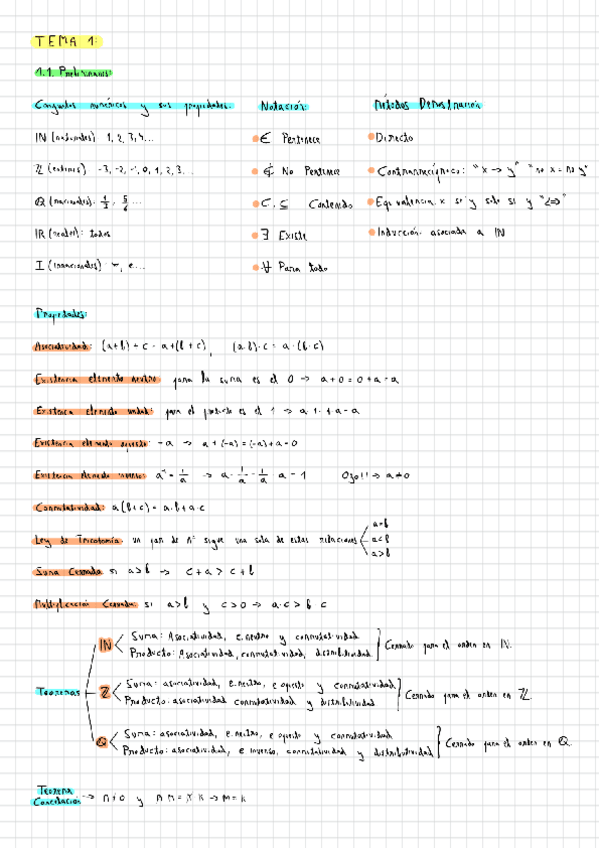 TEMA 1:
1.1. Preliminares
Conjuntos numéricos y sus propiedades. Notación: Métodos Demostración
IN (naturales) 1, 2, 3, 4... ∈ Pertenece Directo
ℤ (enteros) -3, -2, -1, 0, 1, 2, 3... ∉ No Pertenece Contrarrecíproco: "x → y" "no x = no y"
Q (racionales) ⊂, ⊆ Contenido Equivalencia. x si y solo si y "⟺"
IR (reales): todos ∃ Existe Inducción asociada a IN
I (irracionales) e... ∀ Para todo
Propiedades:
Asociatividad: (a+b)+c = a+(b+c), (a·b)·c = a·(b·c)
Existencia elemento neutro: para la suma es el 0 → a+0=0+a=a
Existencia elemento unidad: para el producto es el 1 → a·1=1·a=a
Existencia elemento opuesto: -a → a+(-a)=(-a)+a=0
Existencia elemento inverso: a⁻¹=1/a → a·1/a=1/a·a=1 Ojo!! → a≠0
Conmutatividad: a(b+c)=a·b+a·c
Ley de Tricotomía: un par de nº sigue una sola de estas relaciones a=b
a<b
a>b
Suma Cerrada si a>b → c+a>c+b
Multiplicación Cerrada: si a>b y c>0 → a·c>b·c
Teoremas
IN Suma: Asociatividad, e.neutro y conmutatividad
Producto: Asociatividad, conmutatividad, distributividad Cerrado para el orden en IN.
ℤ Suma: asociatividad, e.neutro, e opuesto y conmutatividad
Producto: asociatividad conmutatividad y distributividad Cerrado para el orden en ℤ.
Q Suma: asociatividad, e.neutro, e opuesto y conmutatividad.
Producto: asociatividad, e inverso, conmutatividad y distributividad Cerrado para el orden en Q.
Teorema
Cancelación → n≠0 y → m=k